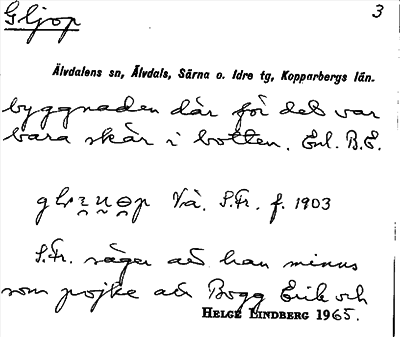 Gljop
3
Älvdalens sn, Älvdals, Särna o. Idre tg, Kopparbergs län.
byggnaden där för det var
bara skär i botten. Enl. B.E.
Vå. S.Fr. f. 1903
S.Fr. säger att han minns
som pojke att Bogg Erik och
HELGE LINDBERG 1965.